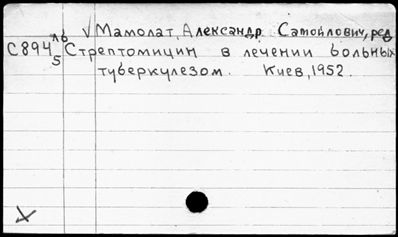 ль √ Мамолат, Александр Самойлович, ред
С894 Стрептомицин в лечении больных
5 туберкулезом. Киев, 1952.